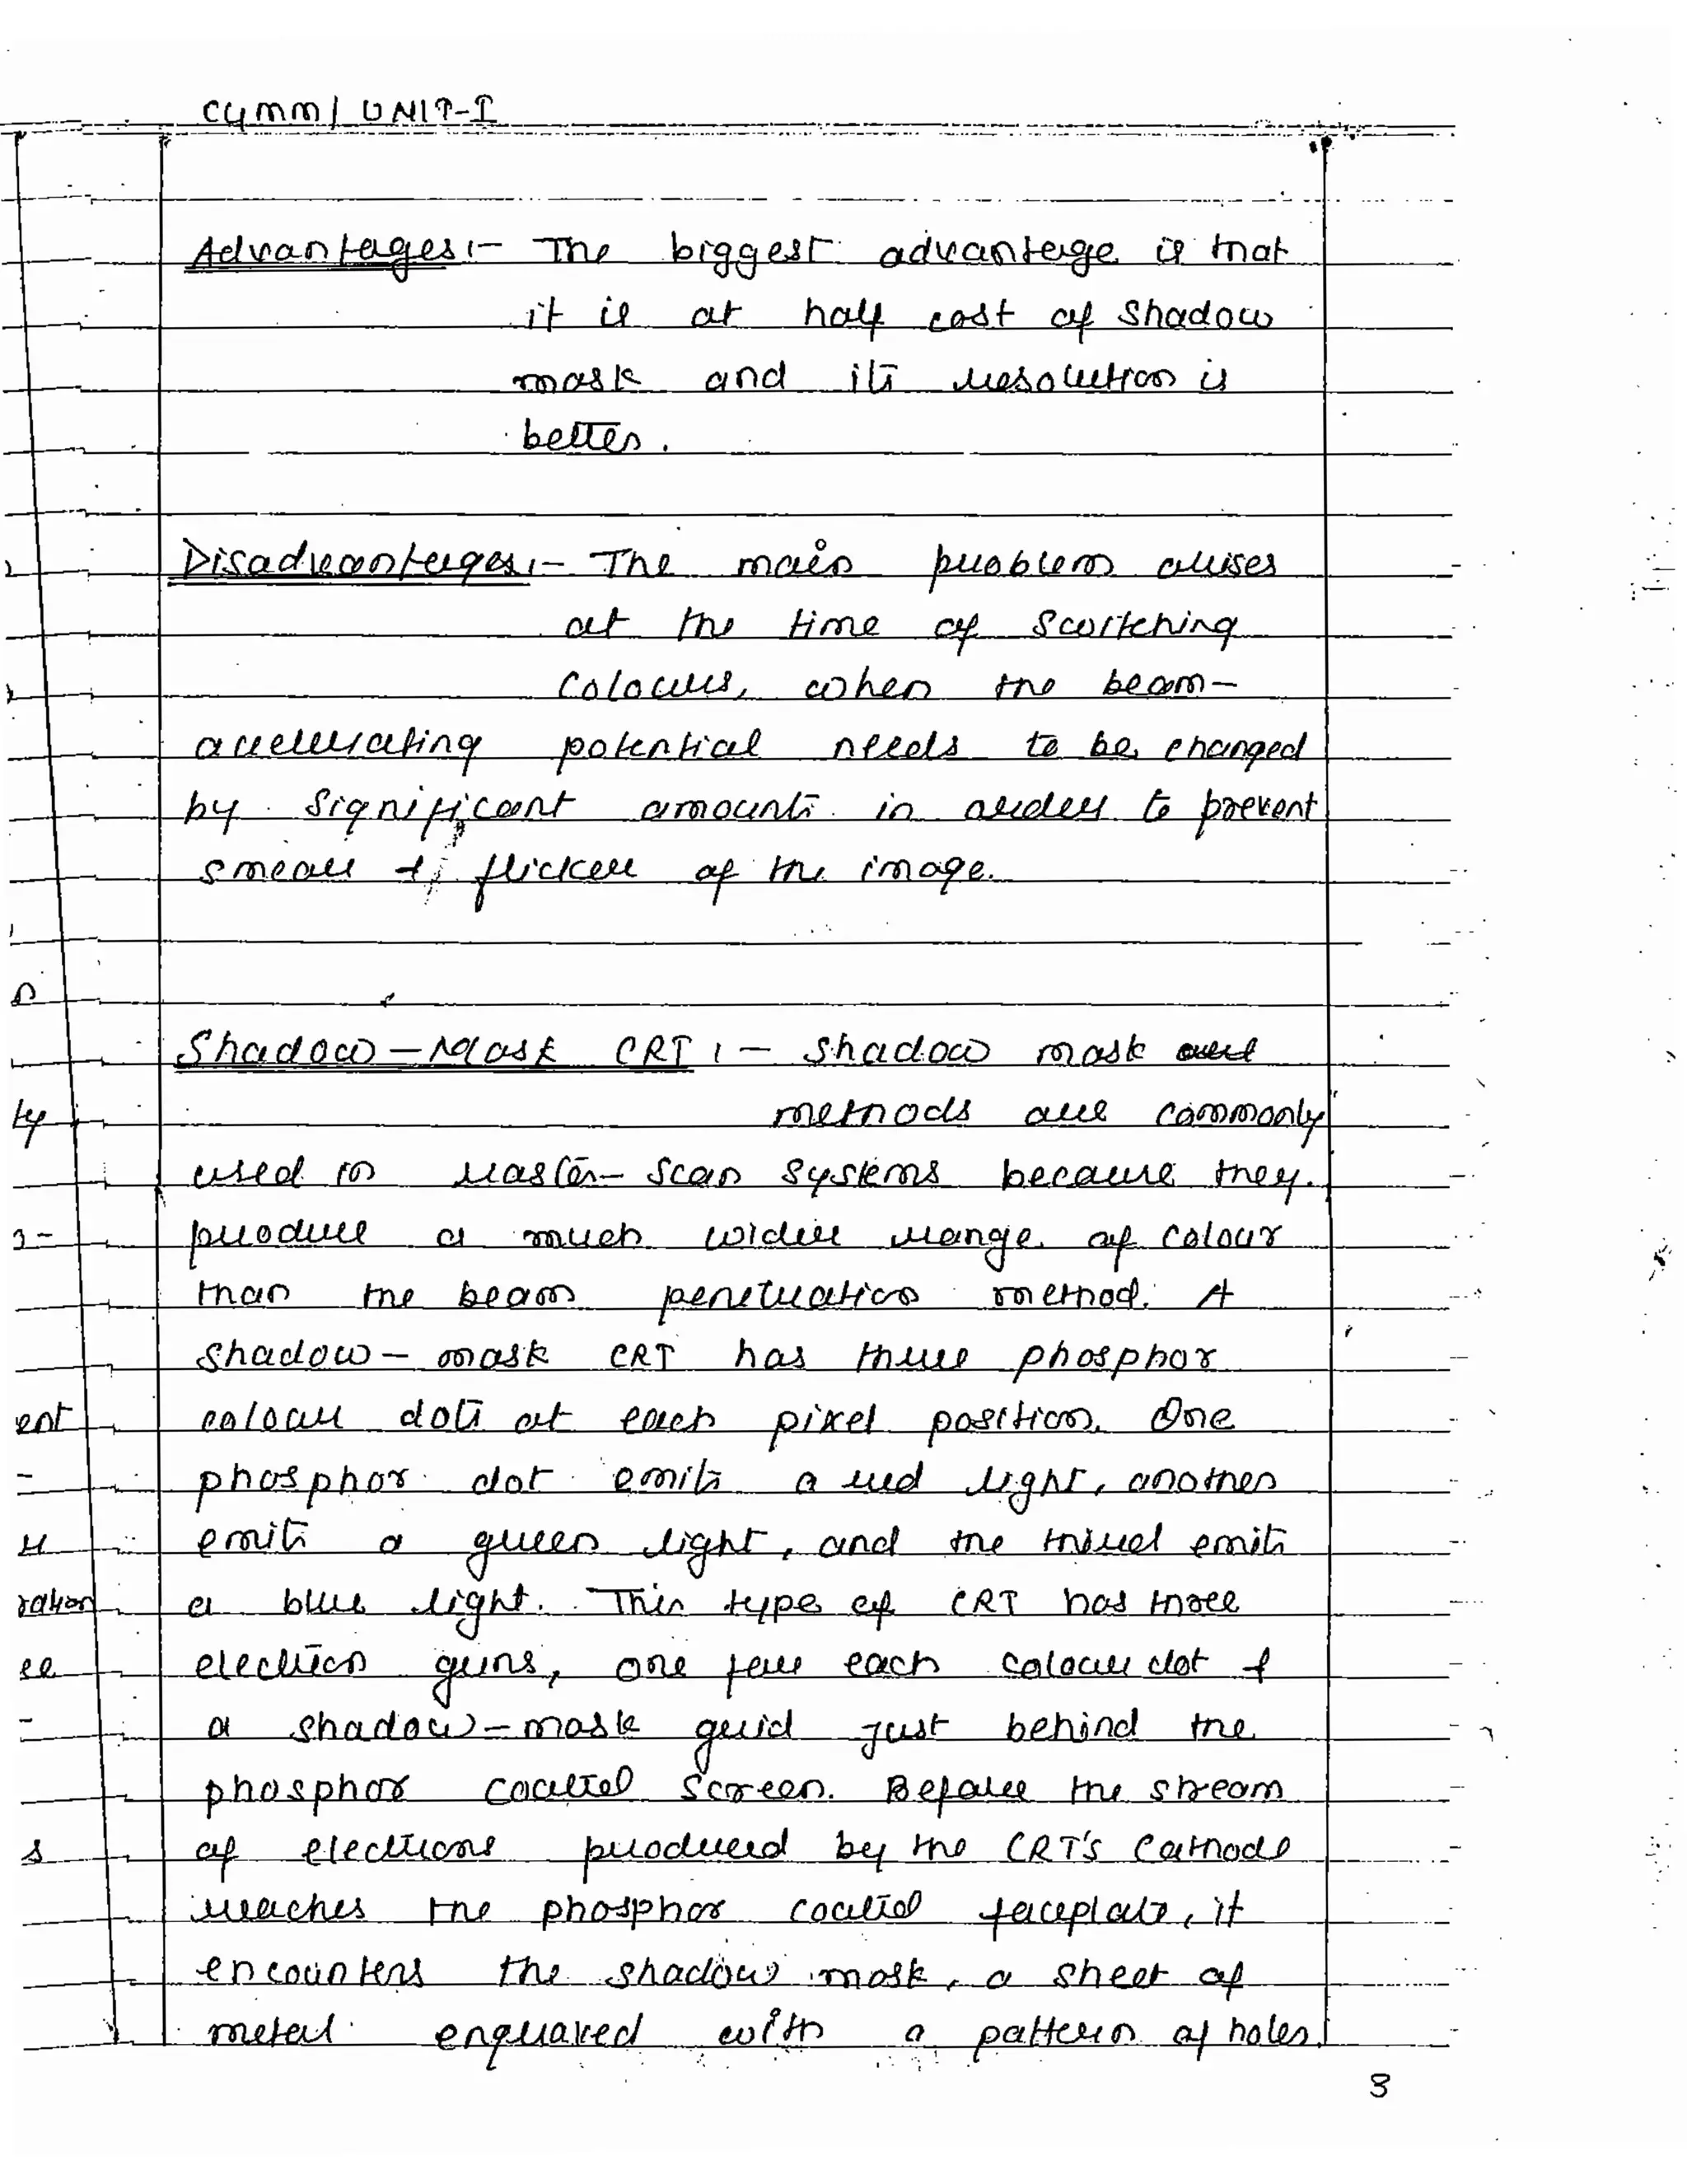 CGMM/ UNIT-I
Advantages:- The biggest advantage is that
it is at half cost of Shadow
mask and its resolution is
better.
Disadvantages:- The main problem arises
at the time of Switching
Colours, when the beam-
accelerating potential needs to be changed
by significant amounts in order to prevent
smear & flicker of the image.
Shadow-Mask CRT :- Shadow mask
methods are commonly
used in raster-scan systems because they
produce a much wider range of colour
than the beam penetration method. A
shadow-mask CRT has three phosphor
colour dots at each pixel position. One
phosphor dot emits a red light, another
emits a green light, and the third emits
a blue light. This type of CRT has three
electron guns, one for each colour dot &
a shadow-mask grid just behind the
phosphor coated screen. Before the stream
of electrons produced by the CRT's Cathode
reaches the phosphor coated faceplate, it
encounters the shadow mask, a sheet of
metal engraved with a pattern of holes.
ty
ent
ration
ee
s
3